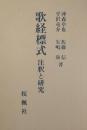 沖森卓也 佐藤信
平沢竜介 矢嶋泉 著
歌経標式
注釈と研究
桜楓社